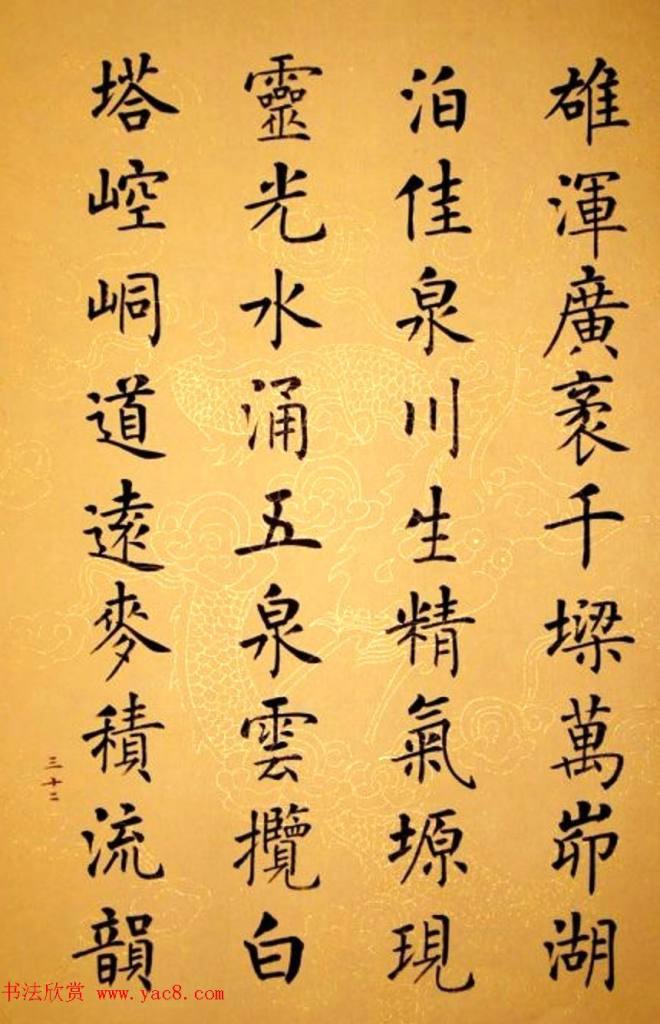 雄渾廣袤千墚萬峁湖
泊佳泉川生精氣塬現
靈光水涌五泉雲攬白
塔崆峒道遠麥積流韻
三十二
书法欣赏 www.yac8.com